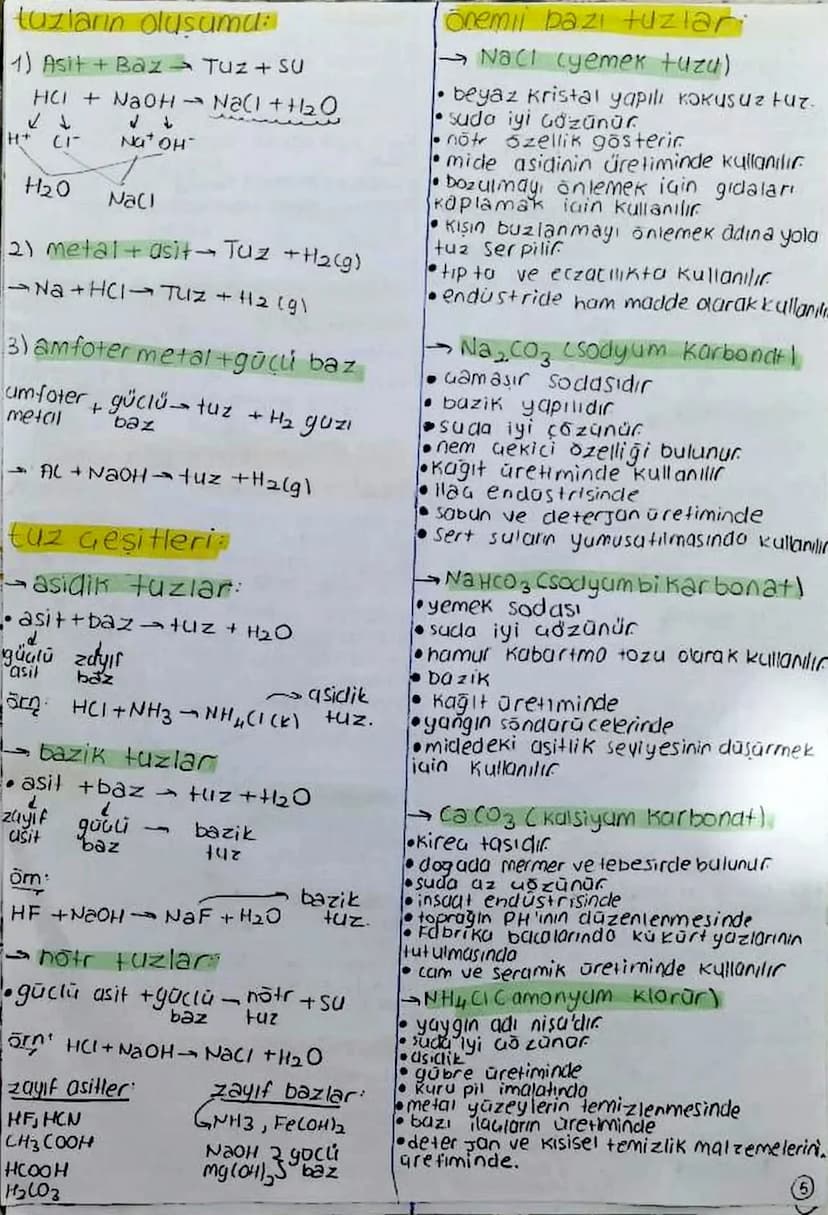 tuzların oluşumu:
1) Asit + Baz → Tuz + su
HCl + NaOH → NaCl + H2O
H+ Cl- Na+ OH-
H2O NaCl
2) metal + asit → Tuz + H2(g)
→ Na + HCl → Tuz + H2 (g)
3) amfoter metal + güçlü baz
amfoter metal + güçlü baz → tuz + H2 gazı
→ Al + NaOH → tuz + H2(g)
tuz çeşitleri:
→ asidik tuzlar:
• asit + baz → tuz + H2O
güçlü asit zayıf baz
örn: HCl + NH3 → NH4Cl(k) → asidik tuz.
→ bazik tuzlar
• asit + baz → tuz + H2O
zayıf asit güçlü baz → bazik tuz
örn:
HF + NaOH → NaF + H2O bazik tuz.
→ nötr tuzlar:
• güçlü asit + güçlü baz → nötr tuz + su
örn: HCl + NaOH → NaCl + H2O
zayıf asitler:
HF, HCN
CH3COOH
HCOOH
H2CO3
zayıf bazlar:
NH3, Fe(OH)2
NaOH
mg(OH)2 } güçlü baz
önemli bazı tuzlar:
→ NaCl (yemek tuzu)
• beyaz kristal yapılı kokusuz tuz.
• suda iyi çözünür.
• nötr özellik gösterir.
• mide asidinin üretiminde kullanılır.
• bozulmayı önlemek için gıdaları
kaplamak için kullanılır.
• kışın buzlanmayı önlemek adına yola
tuz serpilir.
• tıpta ve eczacılıkta kullanılır.
• endüstride ham madde olarak kullanılır
→ Na2CO3 (sodyum karbonat)
• çamaşır sodasıdır
• bazik yapılıdır
• suda iyi çözünür.
• nem çekici özelliği bulunur.
• kağıt üretiminde kullanılır
• ilaç endüstrisinde
• sabun ve deterjan üretiminde
• sert suların yumuşatılmasında kullanılır
→ NaHCO3 (sodyum bikarbonat)
• yemek sodası
• suda iyi çözünür.
• hamur kabartma tozu olarak kullanılır.
• bazik
• kağıt üretiminde
• yangın söndürücelerinde
• midedeki asitlik seviyesinin düşürmek
için kullanılır
→ CaCO3 (kalsiyum karbonat).
• kireç taşıdır.
• doğada mermer ve tebeşirde bulunur.
• suda az çözünür.
• inşaat endüstrisinde
• toprağın PH'ının düzenlenmesinde
• Fabrika bacalarında kükürt yazlarının
tutulmasında
• cam ve seramik üretiminde kullanılır
→ NH4Cl (amonyum klorür)
• yaygın adı nişadır.
• suda iyi çözünür
• asidik
• gübre üretiminde
• kuru pil imalatında
• metal yüzeylerin temizlenmesinde
• bazı ilaçların üretiminde
• deterjan ve kişisel temizlik malzemelerin.
üretiminde.
5